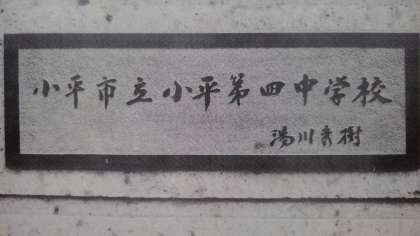 小平市立小平第四中学校
湯川秀樹